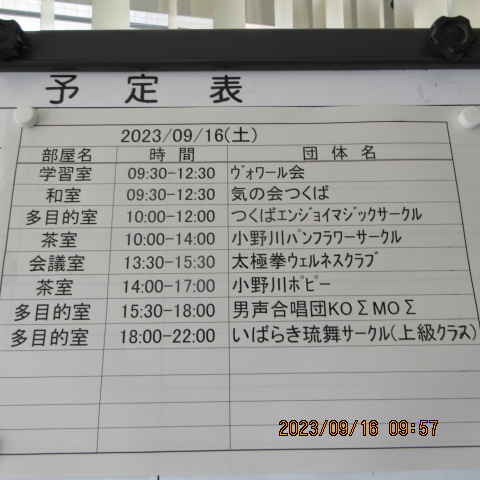 予定表
2023/09/16(土)
部屋名 時間 団体名
学習室 09:30-12:30 ヴォワール会
和室 09:30-12:30 気の会つくば
多目的室 10:00-12:00 つくばエンジョイマジックサークル
茶室 10:00-14:00 小野川パンフラワーサークル
会議室 13:30-15:30 太極拳ウェルネスクラブ
茶室 14:00-17:00 小野川ポピー
多目的室 15:30-18:00 男声合唱団KOΣMOΣ
多目的室 18:00-22:00 いばらき琉舞サークル(上級クラス)
2023/09/16 09:57